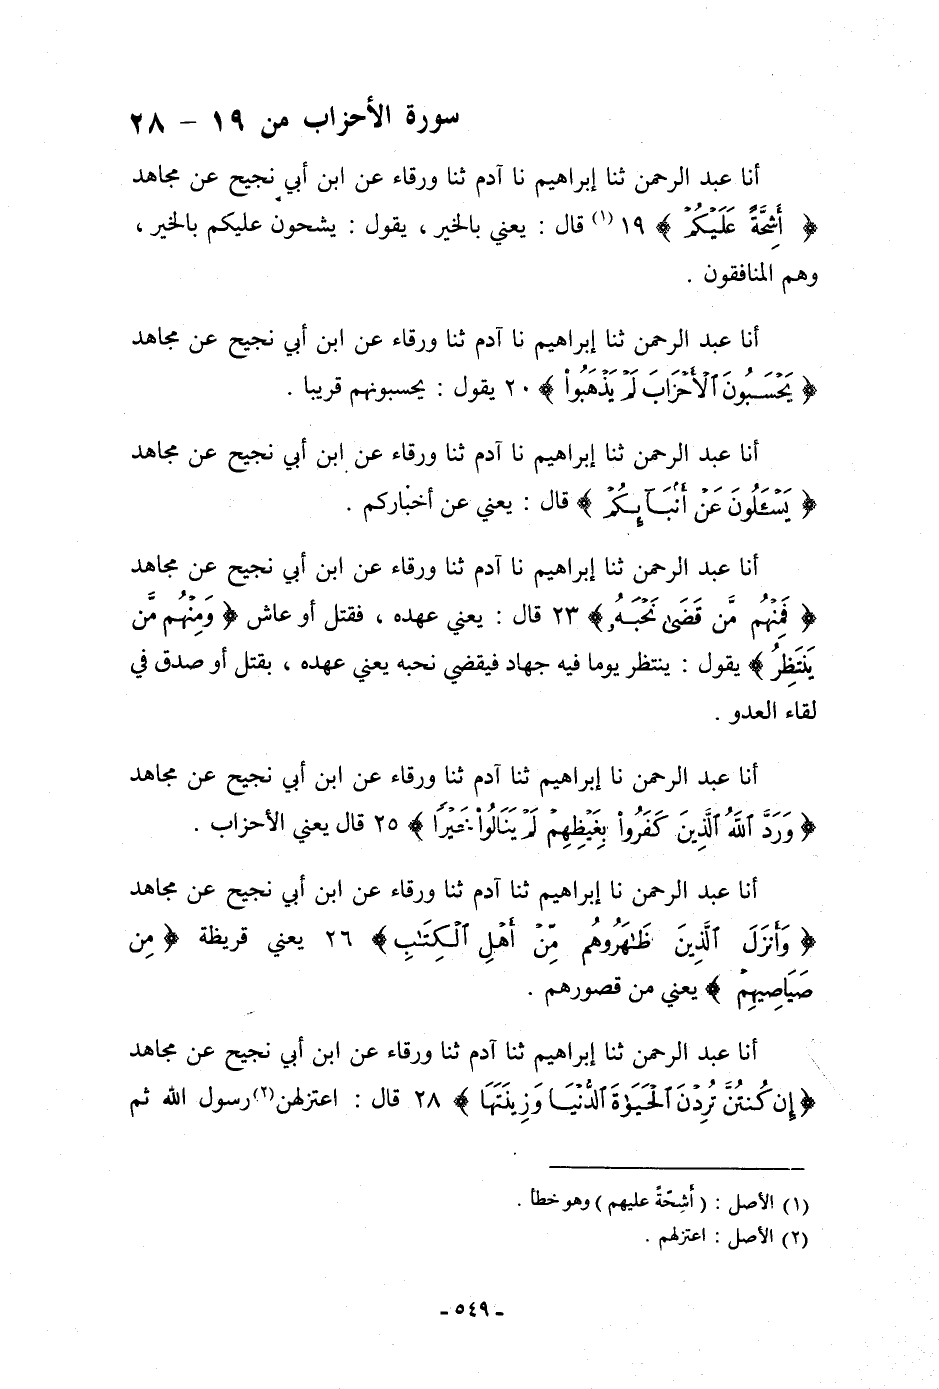 سورة الأحزاب من ١٩ - ٢٨
أنا عبد الرحمن ثنا إبراهيم نا آدم ثنا ورقاء عن ابن أبي نجيح عن مجاهد
﴿ أَشِحَّةً عَلَيْكُمْ ﴾ ١٩ (١) قال : يعني بالخير ، يقول : يشحون عليكم بالخير ،
وهم المنافقون .
أنا عبد الرحمن ثنا إبراهيم نا آدم ثنا ورقاء عن ابن أبي نجيح عن مجاهد
﴿ يَحْسَبُونَ ٱلْأَحْزَابَ لَمْ يَذْهَبُوا۟ ﴾ ٢٠ يقول : يحسبونهم قريبا .
أنا عبد الرحمن ثنا إبراهيم نا آدم ثنا ورقاء عن ابن أبي نجيح عن مجاهد
﴿ يَسْـَٔلُونَ عَنْ أَنۢبَآئِكُمْ ﴾ قال : يعني عن أخباركم .
أنا عبد الرحمن ثنا إبراهيم نا آدم ثنا ورقاء عن ابن أبي نجيح عن مجاهد
﴿ فَمِنْهُم مَّن قَضَىٰ نَحْبَهُۥ ﴾ ٢٣ قال : يعني عهده ، فقتل أو عاش ﴿ وَمِنْهُم مَّن
يَنتَظِرُ ﴾ يقول : ينتظر يوما فيه جهاد فيقضي نحبه يعني عهده ، بقتل أو صدق في
لقاء العدو .
أنا عبد الرحمن نا إبراهيم ثنا آدم ثنا ورقاء عن ابن أبي نجيح عن مجاهد
﴿ وَرَدَّ ٱللَّهُ ٱلَّذِينَ كَفَرُوا۟ بِغَيْظِهِمْ لَمْ يَنَالُوا۟ خَيْرًا ﴾ ٢٥ قال يعني الأحزاب .
أنا عبد الرحمن نا إبراهيم ثنا آدم ثنا ورقاء عن ابن أبي نجيح عن مجاهد
﴿ وَأَنزَلَ ٱلَّذِينَ ظَـٰهَرُوهُم مِّنْ أَهْلِ ٱلْكِتَـٰبِ ﴾ ٢٦ يعني قريظة ﴿ مِن
صَيَاصِيهِمْ ﴾ يعني من قصورهم .
أنا عبد الرحمن ثنا إبراهيم ثنا آدم ثنا ورقاء عن ابن أبي نجيح عن مجاهد
﴿ إِن كُنتُنَّ تُرِدْنَ ٱلْحَيَوٰةَ ٱلدُّنْيَا وَزِينَتَهَا ﴾ ٢٨ قال : اعتزلهن(٢) رسول الله ثم
(١) الأصل : ( أَشِحّةً عليهم ) وهو خطأ .
(٢) الأصل : اعتزلهم .
- ٥٤٩ -